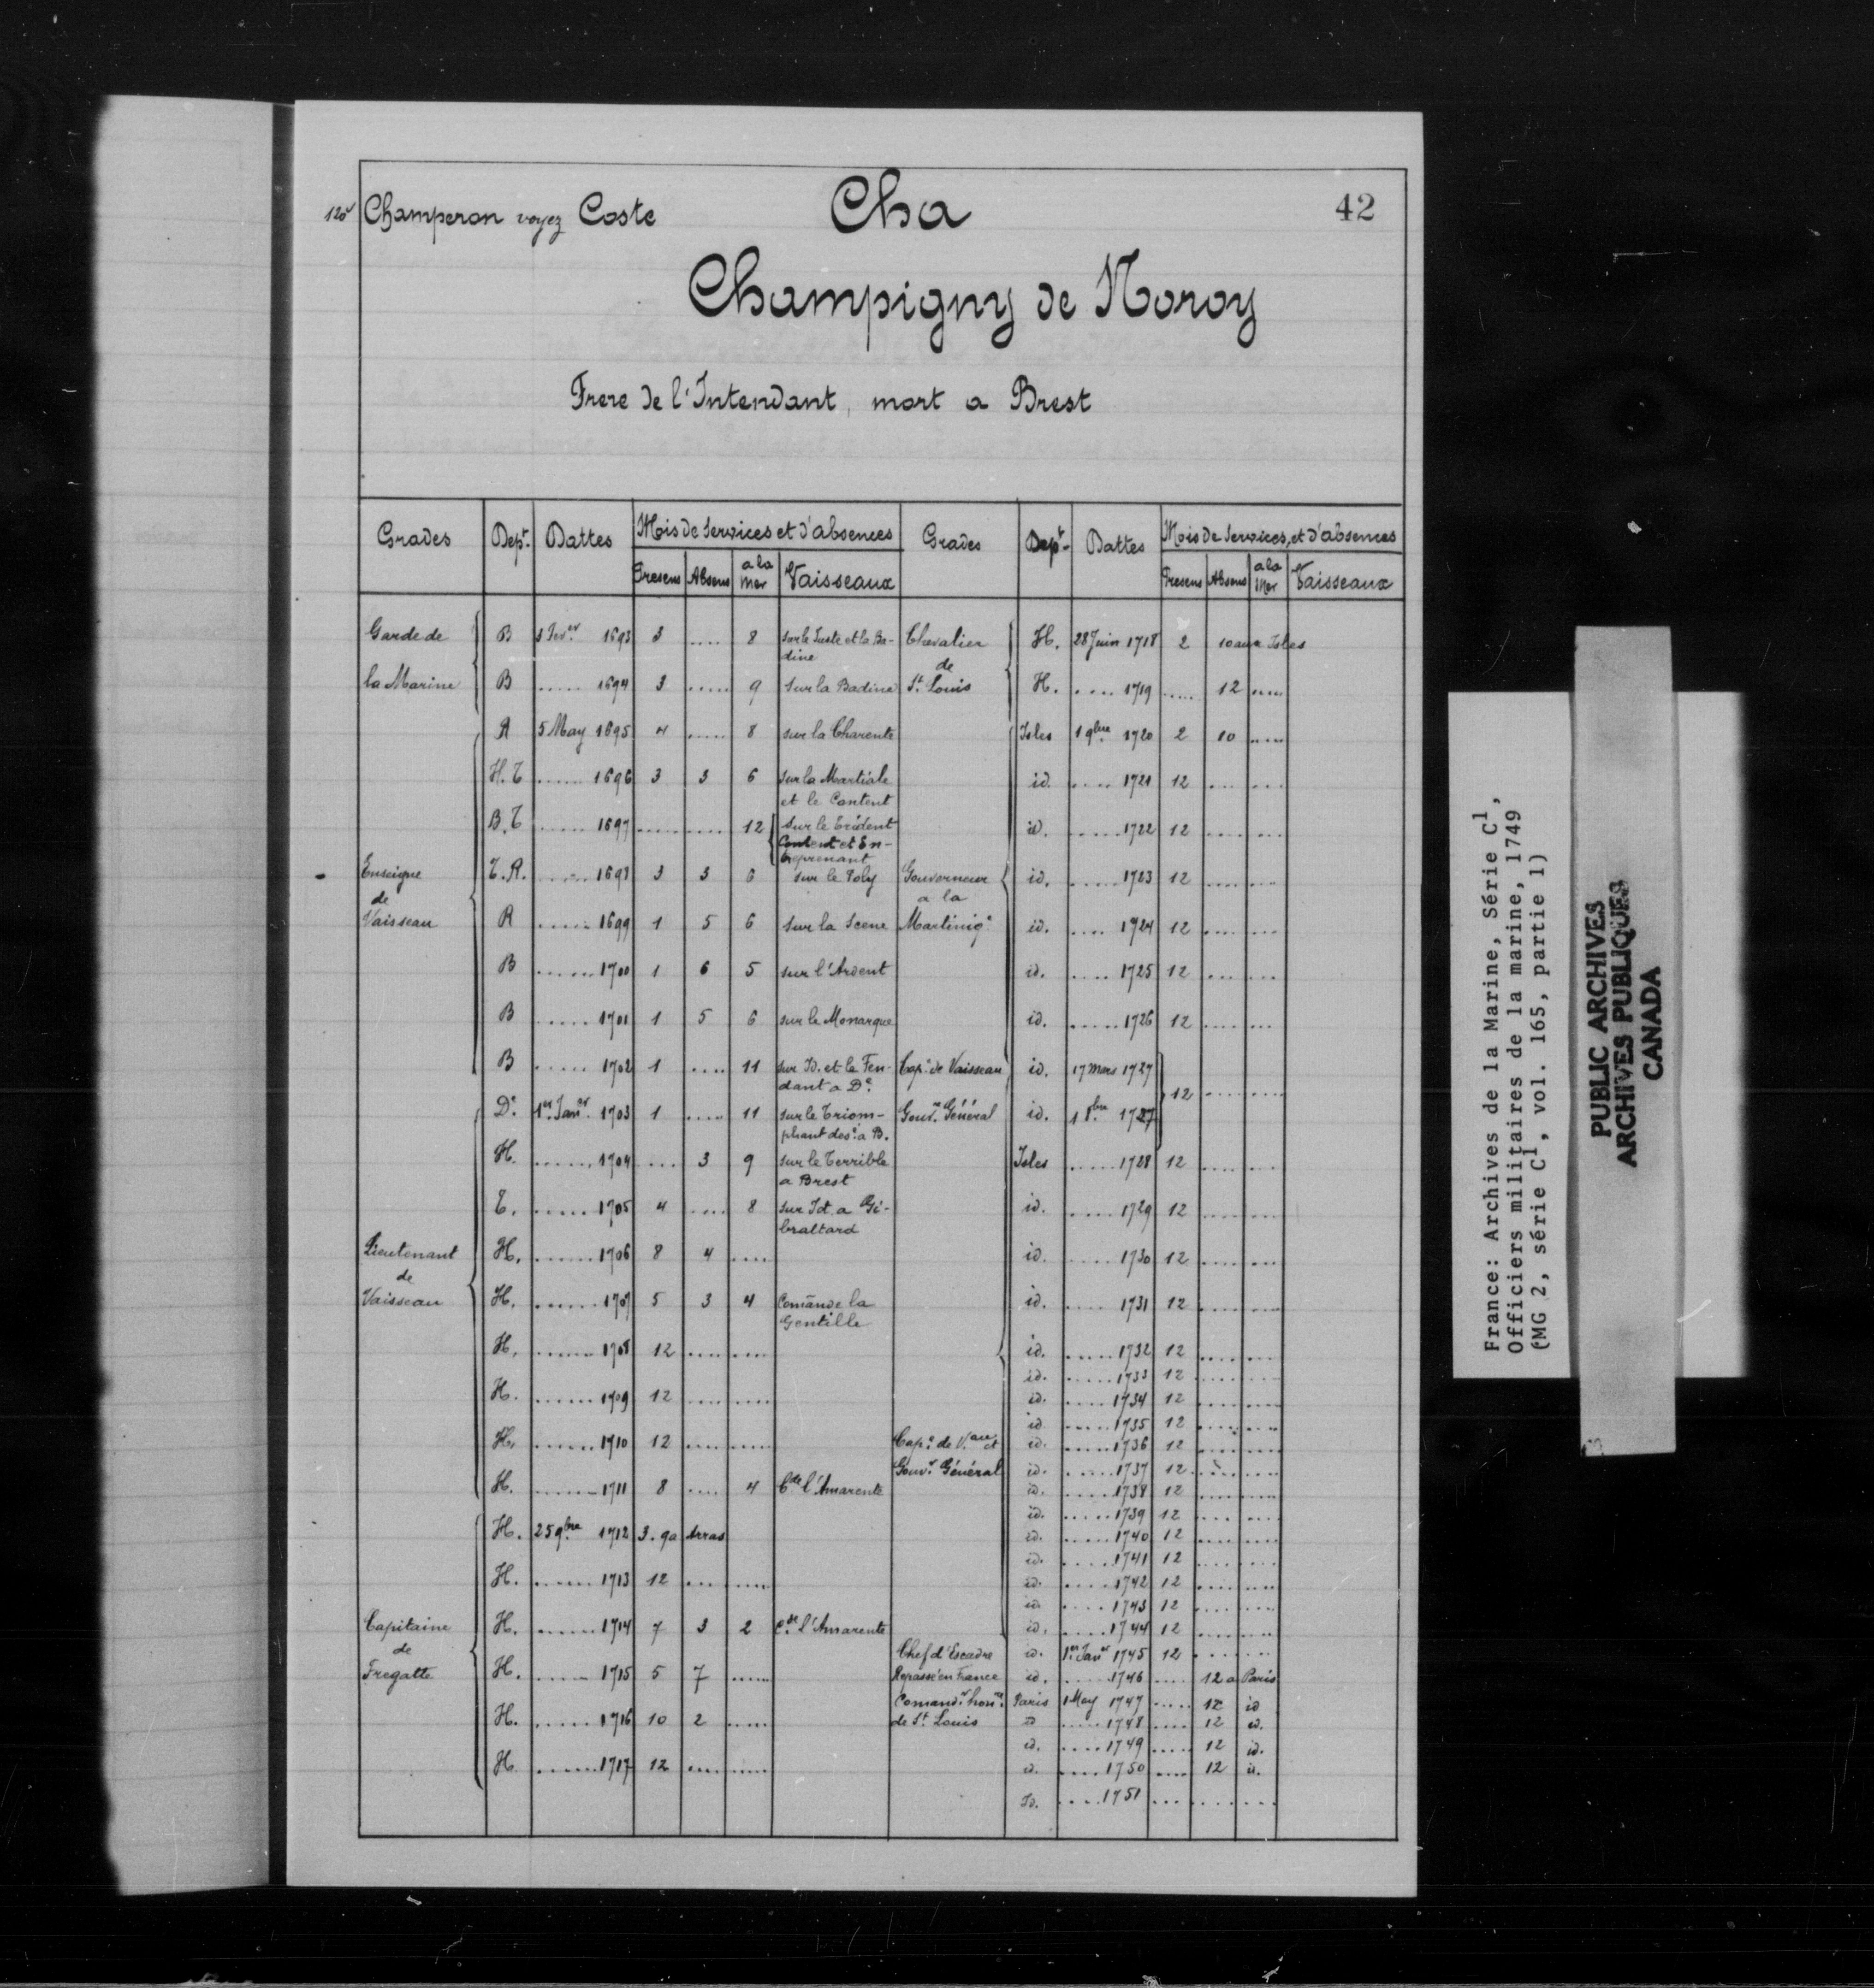 120v Champeron voyez Coste
Cha
42
Champigny de Noroy
Frere de l'Intendant, mort a Brest
Grades Dept. Dattes Mois de Services et d'absences Grades Dept. Dattes Mois de Services, et d'absences
Presens Absens a la Mer Vaisseaux Presens Absens a la Mer Vaisseaux
Garde de la Marine
B 1693 3 ..... 8 sur le Juste et la Badine
B ..... 1694 3 ..... 9 sur la Badine
Enseigne de Vaisseau
R 5 May 1695 4 ..... 8 sur la Charente
H.T ..... 1696 3 3 6 sur la Martiale et le Content
B.T ..... 1697 ..... ..... 12 sur le Trident Content et Entreprenant
T.R. ..... 1698 3 3 6 sur le Poly
R ..... 1699 1 5 6 sur la Scene
B ..... 1700 1 6 5 sur l'Ardent
B ..... 1701 1 5 6 sur le Monarque
B ..... 1702 1 .... 11 sur Id. et le Fendant a De.
Lieutenant de Vaisseau
De. 1er Janer. 1703 1 ..... 11 sur le Triomphant des. a B.
H. ..... 1704 .... 3 9 sur le Terrible a Brest
T. ..... 1705 4 .... 8 sur Id. a Gibraltard
H. ..... 1706 8 4 ....
H. ..... 1707 5 3 4 Comãnde la Gentille
H. ..... 1708 12 .... ....
H. ..... 1709 12 .... ....
H. ..... 1710 12 .... ....
H. ..... 1711 8 .... 4 Cde l'Amarente
Capitaine de Fregatte
H. 25 9bre 1712 3. 9a Arras
H. ..... 1713 12 .... ....
H. ..... 1714 7 3 2 Cde l'Amarente
H. ..... 1715 5 7 .....
H. ..... 1716 10 2 .....
H. ..... 1717 12 .... ....
Chevalier de St. Louis
H. 28 Juin 1718 2 10 aux Isles
H. .... 1719 ..... 12 ....
Gouverneur a la Martiniqe
Isles 1 9bre 1720 2 10 ....
id. .... 1721 12 .... ...
id. ..... 1722 12 .... ...
id. ..... 1723 12 .... ...
id. .... 1724 12 .... ...
id. .... 1725 12 .... ...
id. ..... 1726 12 .... ...
Cape. de Vaisseau id. 17 Mars 1727 12 .... ....
Gouvr. Général id. 1 8bre 1727
Isles ..... 1728 12 .... ...
id. ..... 1729 12 .... ...
id. ..... 1730 12 .... ...
id. ..... 1731 12 .... ...
Cape. de Vau. et Gouvr. Général
id. ..... 1732 12 .... ...
id. ..... 1733 12 .... ...
id. ..... 1734 12 .... ...
id. ..... 1735 12 .... ...
id. ..... 1736 12 .... ...
id. ..... 1737 12 .... ...
id. ..... 1738 12 .... ...
id. ..... 1739 12 .... ...
id. ..... 1740 12 .... ...
id. ..... 1741 12 .... ...
id. ..... 1742 12 .... ...
id. ..... 1743 12 .... ...
id. ..... 1744 12 .... ...
Chef d'Escadre id. 1er Janer 1745 12 .... ...
Repassé en France id. ..... 1746 .... 12 a Paris
Comandr. honre. Paris 1 May 1747 ..... 12 id
de St. Louis id ..... 1748 .... 12 id.
id. .... 1749 ..... 12 id.
id. .... 1750 .... 12 id.
Id. .... 1751 .... .... ....
France: Archives de la Marine, Série C1,
Officiers militaires de la marine, 1749
(MG 2, série C1, vol. 165, partie 1)
PUBLIC ARCHIVES
ARCHIVES PUBLIQUES
CANADA